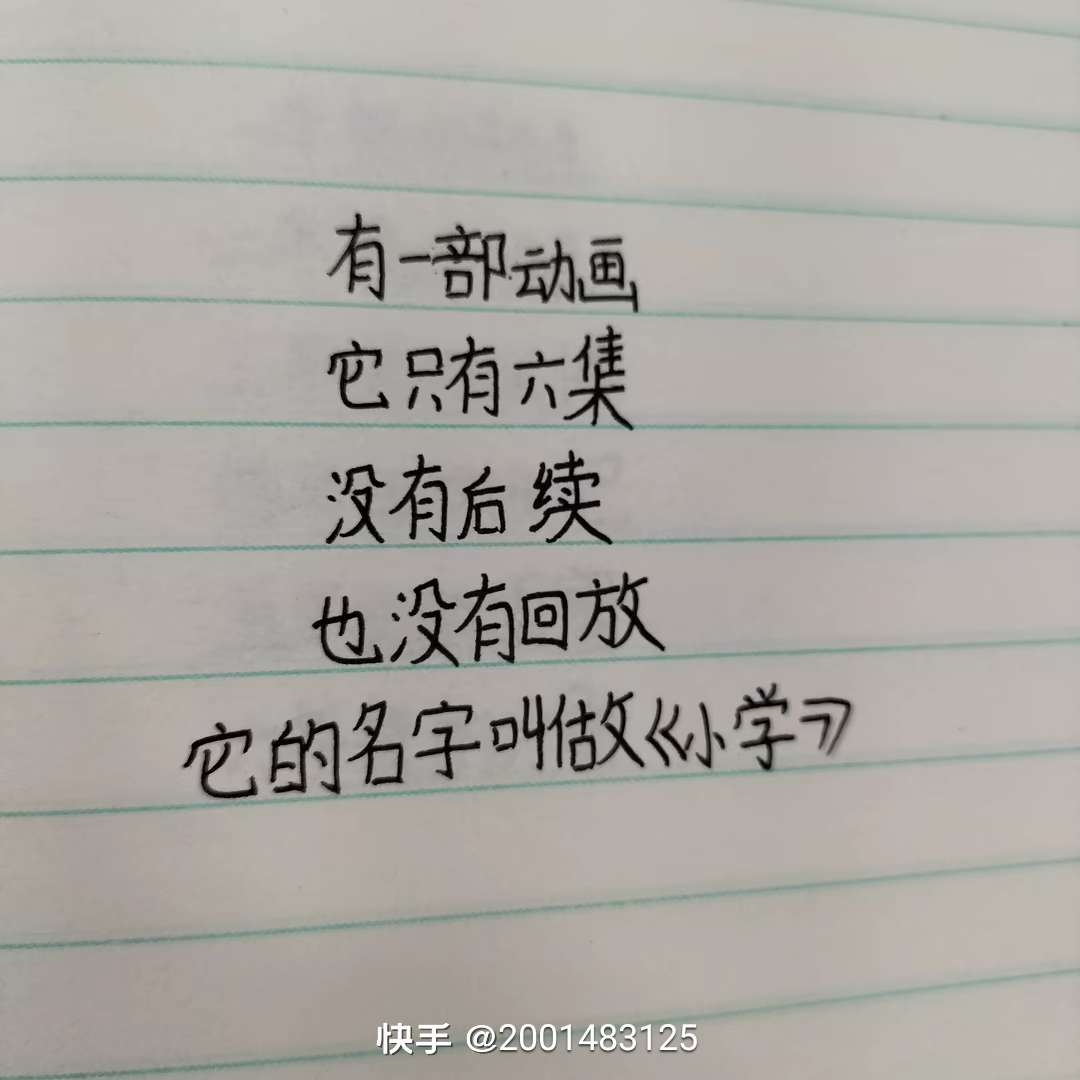 有一部动画
它只有六集
没有后续
也没有回放
它的名字叫做《小学》
快手 @2001483125